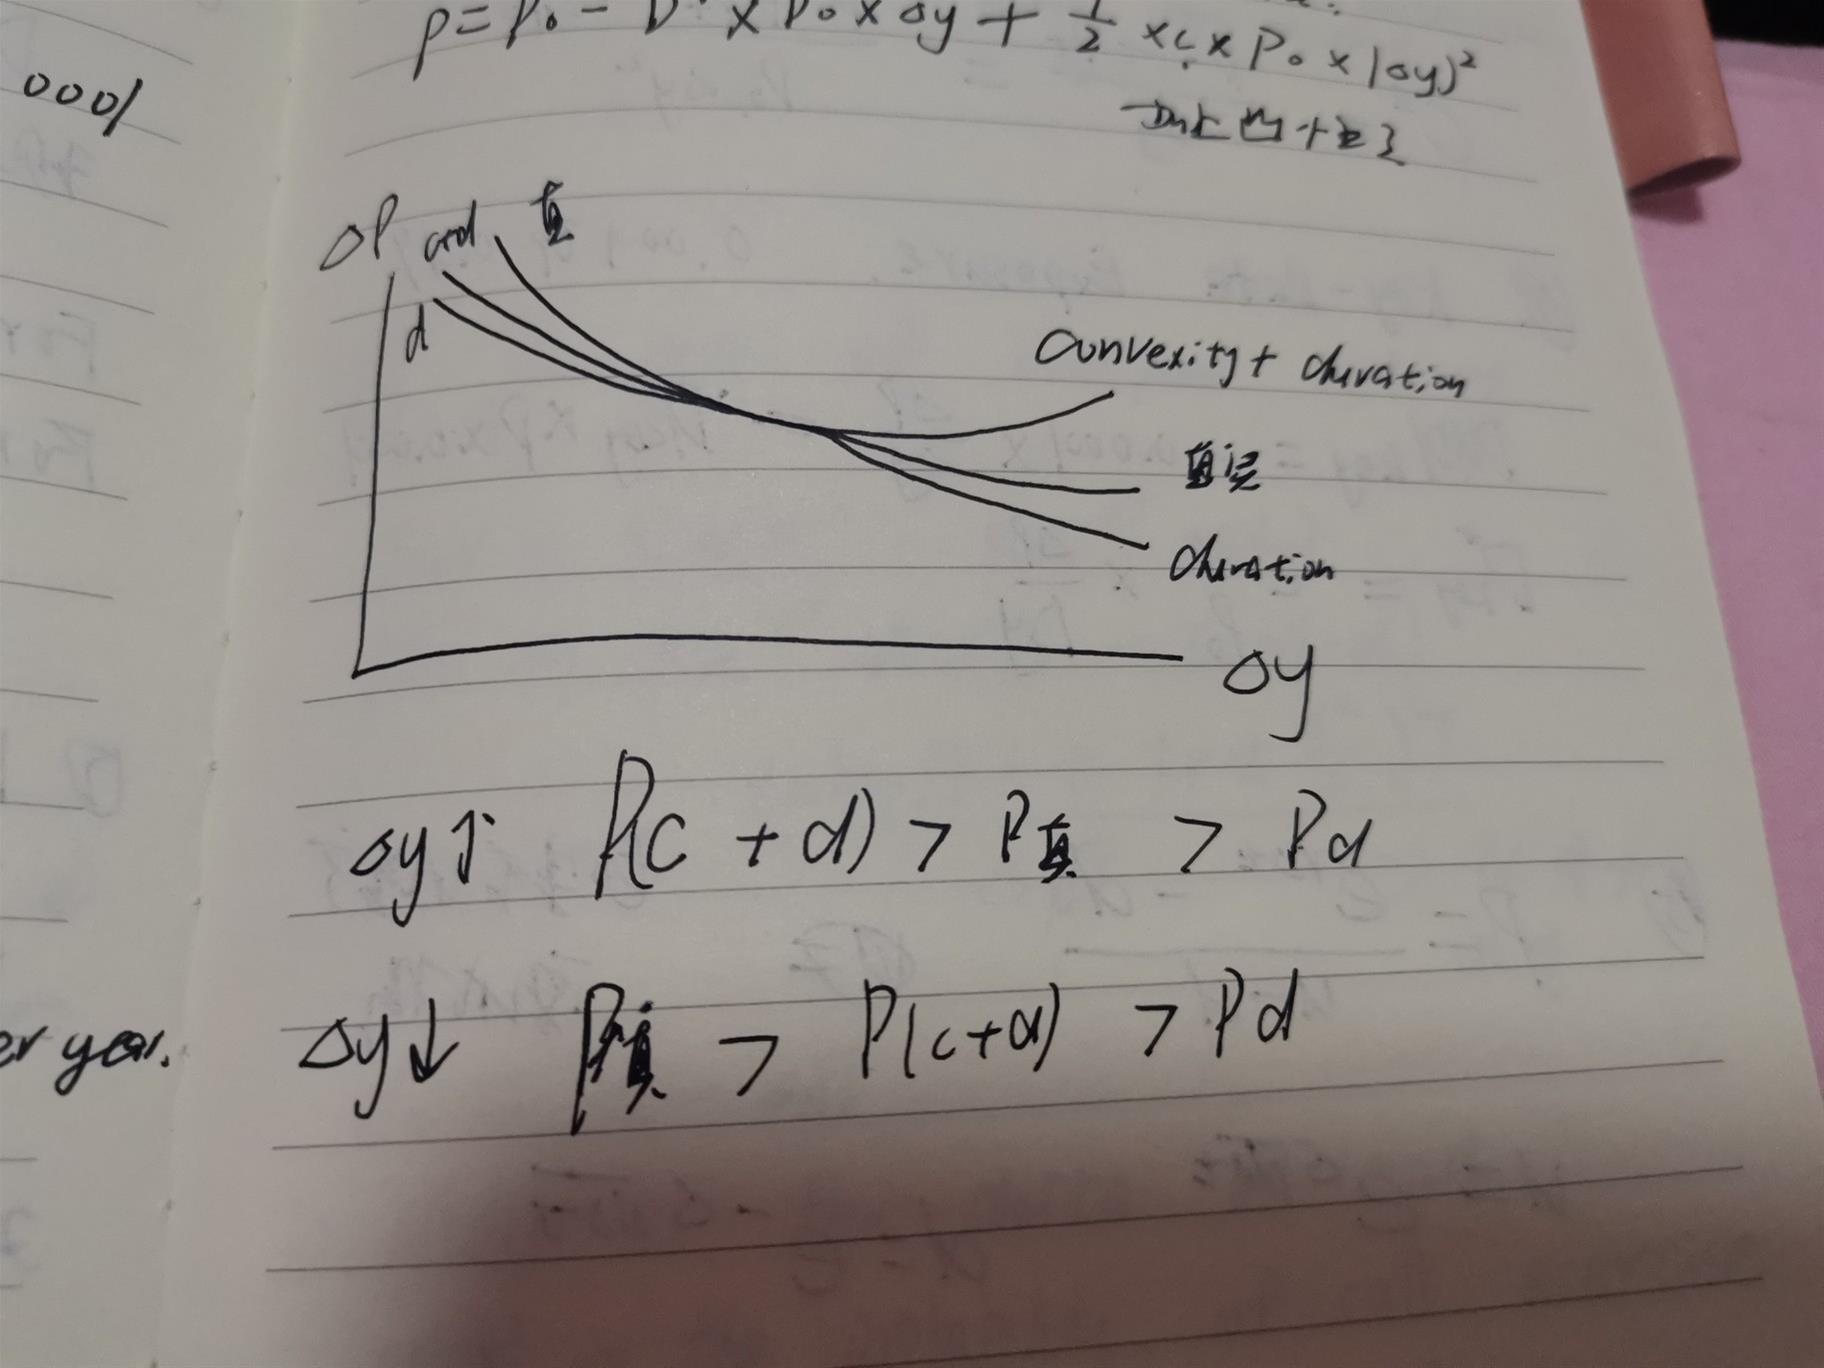 P = P₀ - D* × P₀ × Δy + 1/2 × C × P₀ × (Δy)²
0001
ΔP c+d 真
d
Convexity + duration
真实
duration
Δy
Δy↑ P(c + d) > P真 > Pd
Δy↓ P真 > P(c+d) > Pd
er year.